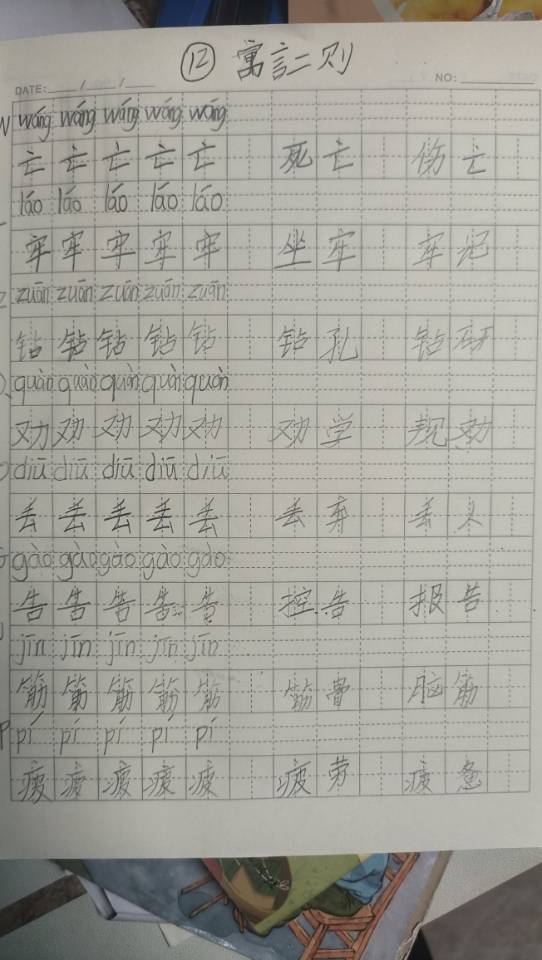 ⑫ 寓言二则
DATE: / / NO:
W wáng wáng wáng wáng wáng
亡 亡 亡 亡 亡 死亡 伤亡
láo láo láo láo láo
牢 牢 牢 牢 牢 坐牢 牢记
Z zuān zuān zuān zuān zuān
钻 钻 钻 钻 钻 钻孔 钻研
Q quàn quàn quàn quàn quàn
劝 劝 劝 劝 劝 劝学 规劝
D diū diū diū diū diū
丢 丢 丢 丢 丢 丢弃 丢人
G gào gào gào gào gào
告 告 告 告 告 控告 报告
J jīn jīn jīn jīn jīn
筋 筋 筋 筋 筋 筋骨 脑筋
P pí pí pí pí pí
疲 疲 疲 疲 疲 疲劳 疲惫